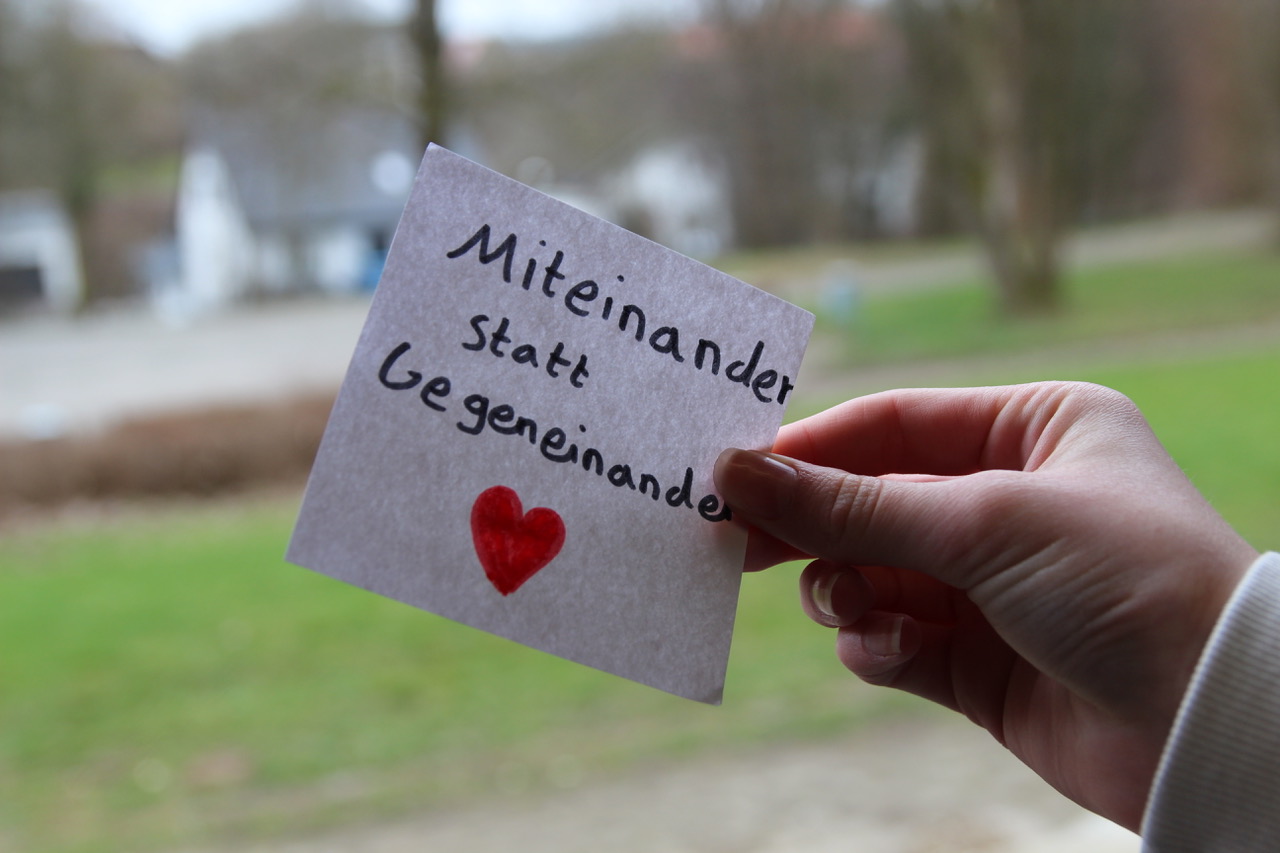 Miteinander
statt
Gegeneinander